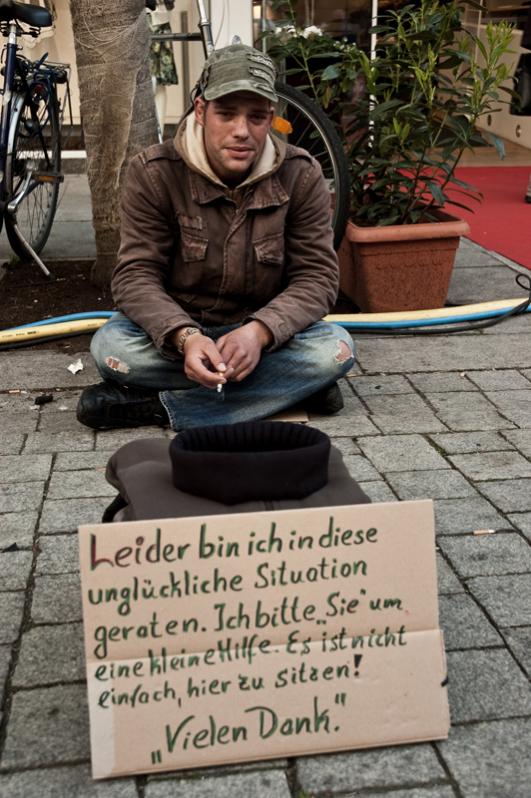 Leider bin ich in diese
unglückliche Situation
geraten. Ich bitte „Sie“ um
eine kleine Hilfe. Es ist nicht
einfach, hier zu sitzen!
„Vielen Dank.“